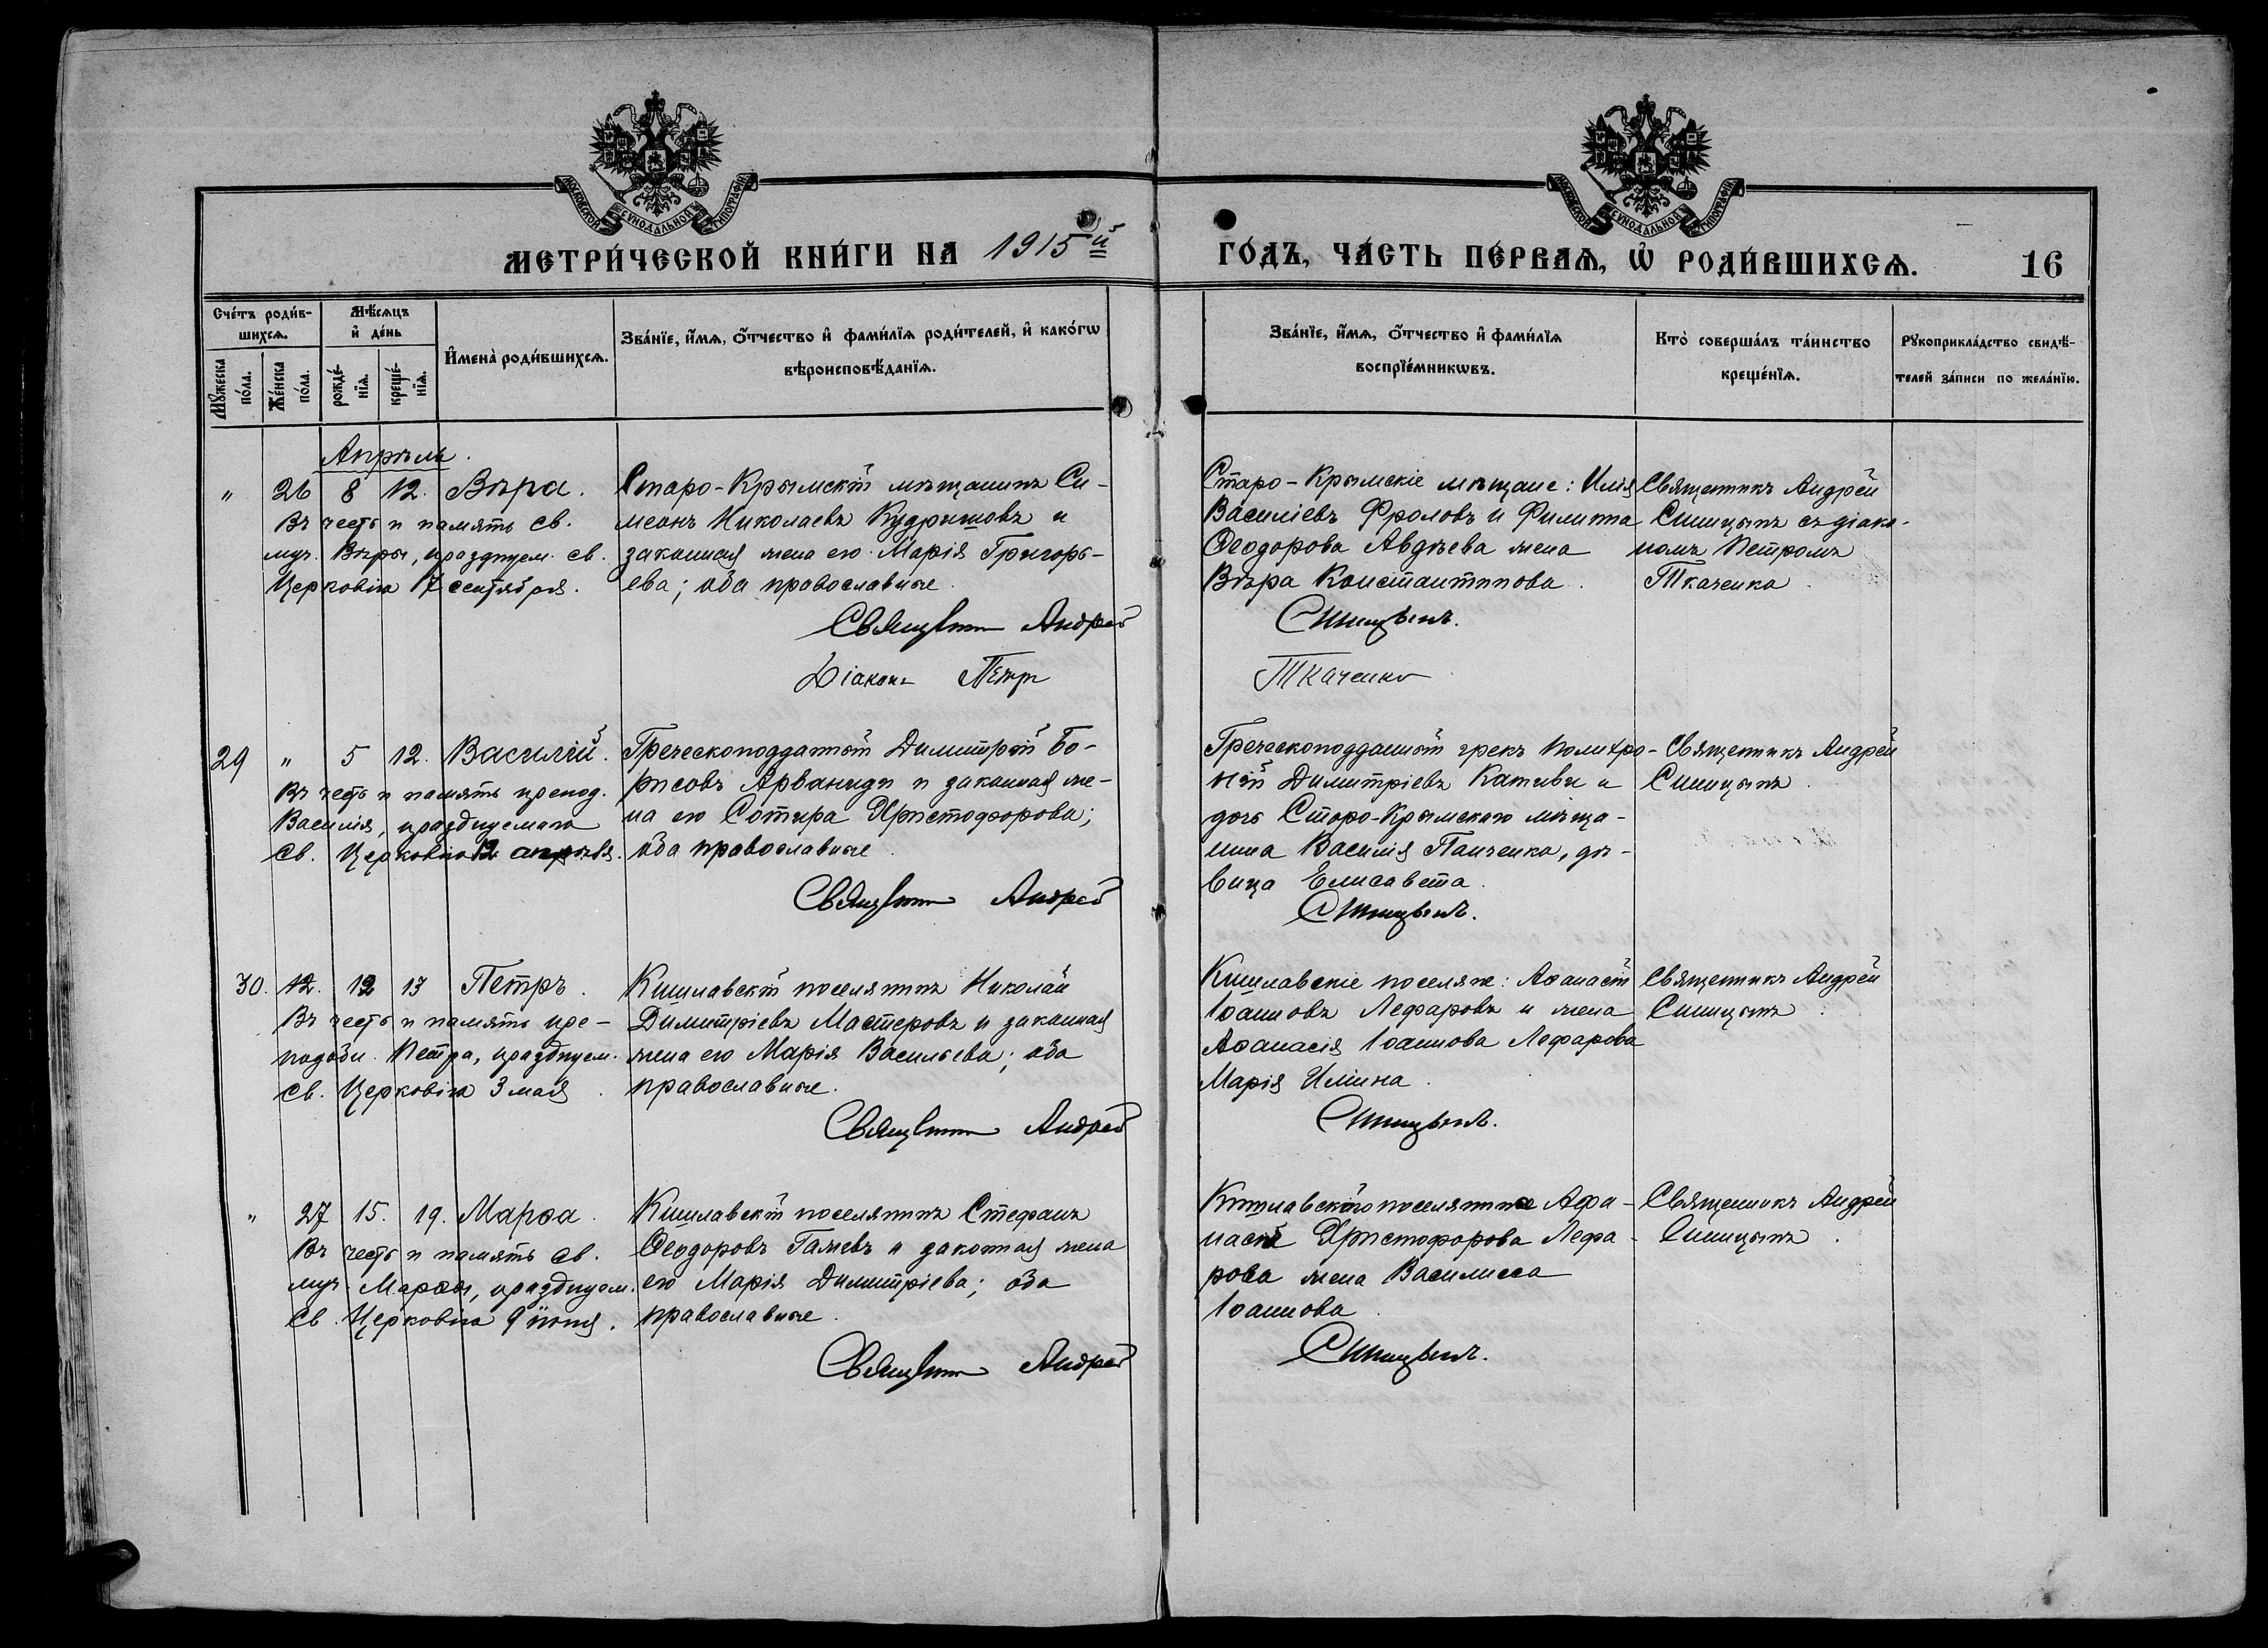 МОСКОВСКОЙ СѴНОДАЛЬНОЙ ТИПОГРАФІИ
МОСКОВСКОЙ СѴНОДАЛЬНОЙ ТИПОГРАФІИ
МЕТРИ́ЧЕСКОЙ КНИ́ГИ НА 1915й ГО́ДЪ, ЧА́СТЬ ПЕ́РВАѦ, Ѡ҆ РОДИ́ВШИХСѦ. 16
Сче́тъ роди́в-
шихсѧ.
Мꙋ́жеска по́ла.
Же́нска по́ла.
Мѣ́сѧцъ
и҆ де́нь
рожде́-
нїѧ.
креще́-
нїѧ.
И҆мена̀ роди́вшихсѧ.
Зва́нїе, и҆́мѧ, ѻ҆́тчество и҆ фами́лїѧ роди́телей, и҆ како́гѡ
вѣроисповѣ́данїѧ.
Зва́нїе, и҆́мѧ, ѻ҆́тчество и҆ фами́лїѧ
воспрїе́мникѡвъ.
Кто̀ соверша́лъ та́инство
креще́нїѧ.
Рꙋкоприкла́дство свидѣ́-
телей за́писи по жела́нїю.
Апрѣль.
„ 26 8 12. Вѣра.
Въ честь и память св.
муч. Вѣры, празднуем. св.
Церковію 17 сентября.
Старо-Крымскій мѣщанинъ Си-
меонъ Николаевъ Кудряшовъ и
законная жена его Марія Григорь-
ева; оба православные.
Священникъ Андрей
Діаконъ Петръ
Старо-Крымскіе мѣщане: Илія
Василіевъ Фроловъ и Филиппа
Ѳеодорова Авдѣева жена
Вѣра Константинова.
Синицынъ.
Ткаченко
Священникъ Андрей
Синицынъ съ діако-
номъ Петромъ
Ткаченко.
29 „ 5 12. Василій.
Въ честь и память препод.
Василія, празднуемаго
св. Церковію 12 апрѣля.
Греческоподданный Димитрій Бо-
рисовъ Арваниди и законная же-
на его Сотира Христофорова;
оба православные.
Священникъ Андрей
Греческоподданный грекъ Полихро-
ній Димитріевъ Каниви и
дочь Старо-Крымскаго мѣща-
нина Василія Панченко, дѣ-
вица Елисавета.
Синицынъ.
Священникъ Андрей
Синицынъ.
30. 12. 12 13 Петръ.
Въ честь и память пре-
подобн. Петра, празднуем.
св. Церковію 3 мая.
Кишлавскій поселянинъ Николай
Димитріевъ Мастеровъ и законная
жена его Марія Васильева; оба
православные.
Священникъ Андрей
Кишлавскіе поселяне: Аѳанасій
Іоанновъ Лефаровъ и жена
Аѳанасія Іоаннова Лефарова
Марія Иліина.
Синицынъ.
Священникъ Андрей
Синицынъ.
„ 27 15. 19. Марѳа.
Въ честь и память св.
муч. Марѳы, празднуем.
св. Церковію 9 іюня.
Кишлавскій поселянинъ Стефанъ
Ѳеодоровъ Галчевъ и законная жена
его Марія Димитріева; оба
православные.
Священникъ Андрей
Кишлавскаго поселянина Аѳа-
насія Христофорова Лефа-
рова жена Василисса
Іоаннова.
Синицынъ.
Священникъ Андрей
Синицынъ.